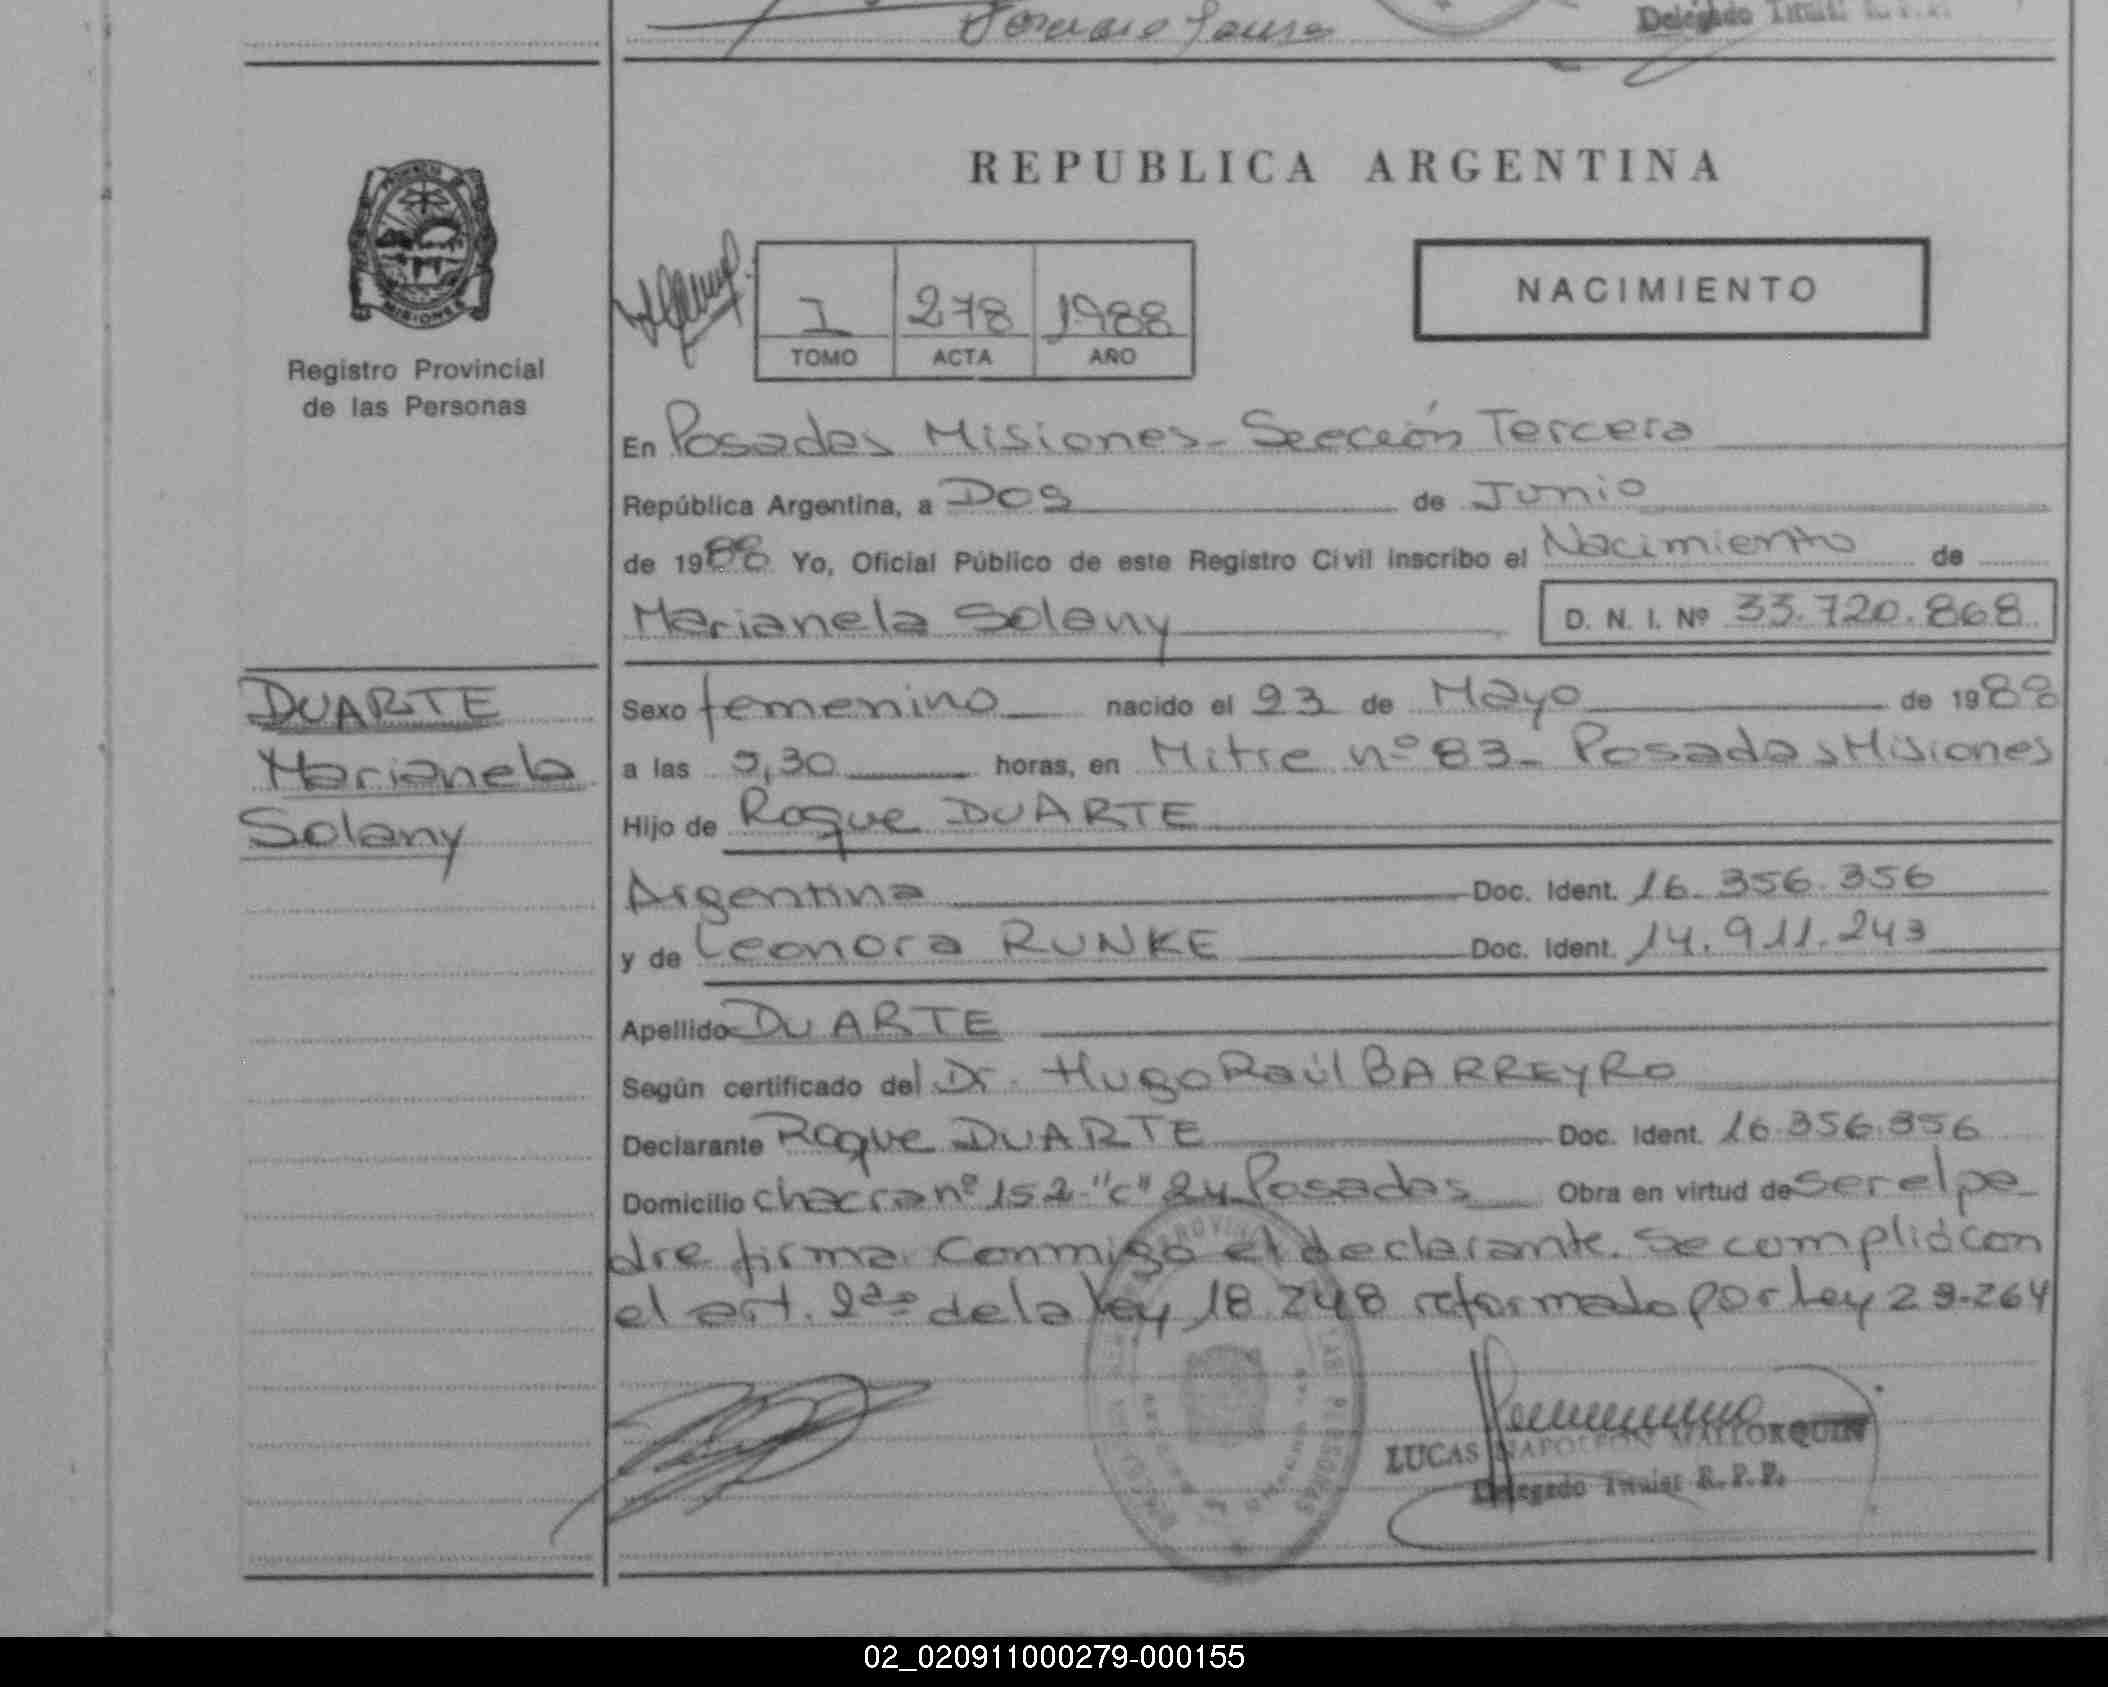 Delegado Titular R.P.P.
REPUBLICA ARGENTINA
PROVINCIA DE
MISIONES
Registro Provincial
de las Personas
1 278 1988
TOMO ACTA AÑO
NACIMIENTO
En Posadas Misiones - Sección Tercera
República Argentina, a Dos de Junio
de 1988 Yo, Oficial Público de este Registro Civil inscribo el Nacimiento de
Marianela Solany D. N. I. Nº 33.720.868
DUARTE
Marianela
Solany
Sexo femenino nacido el 23 de Mayo de 1988
a las 9,30 horas, en Mitre nº 83 - Posadas Misiones
Hijo de Roque DUARTE
Argentina Doc. Ident. 16.356.356
y de Leonora RUNKE Doc. Ident. 14.911.243
Apellido DUARTE
Según certificado del Dr. Hugo Raúl BARREYRO
Declarante Roque DUARTE Doc. Ident. 16.356.356
Domicilio chacra nº 152 "c" 24 Posadas Obra en virtud de ser el pa-
dre firma conmigo el declarante. Se complió con
el art. 2do de la ley 18.248 reformado por ley 23.264
LUCAS NAPOLEON MALLORQUIN
Delegado Titular R.P.P.
02_020911000279-000155